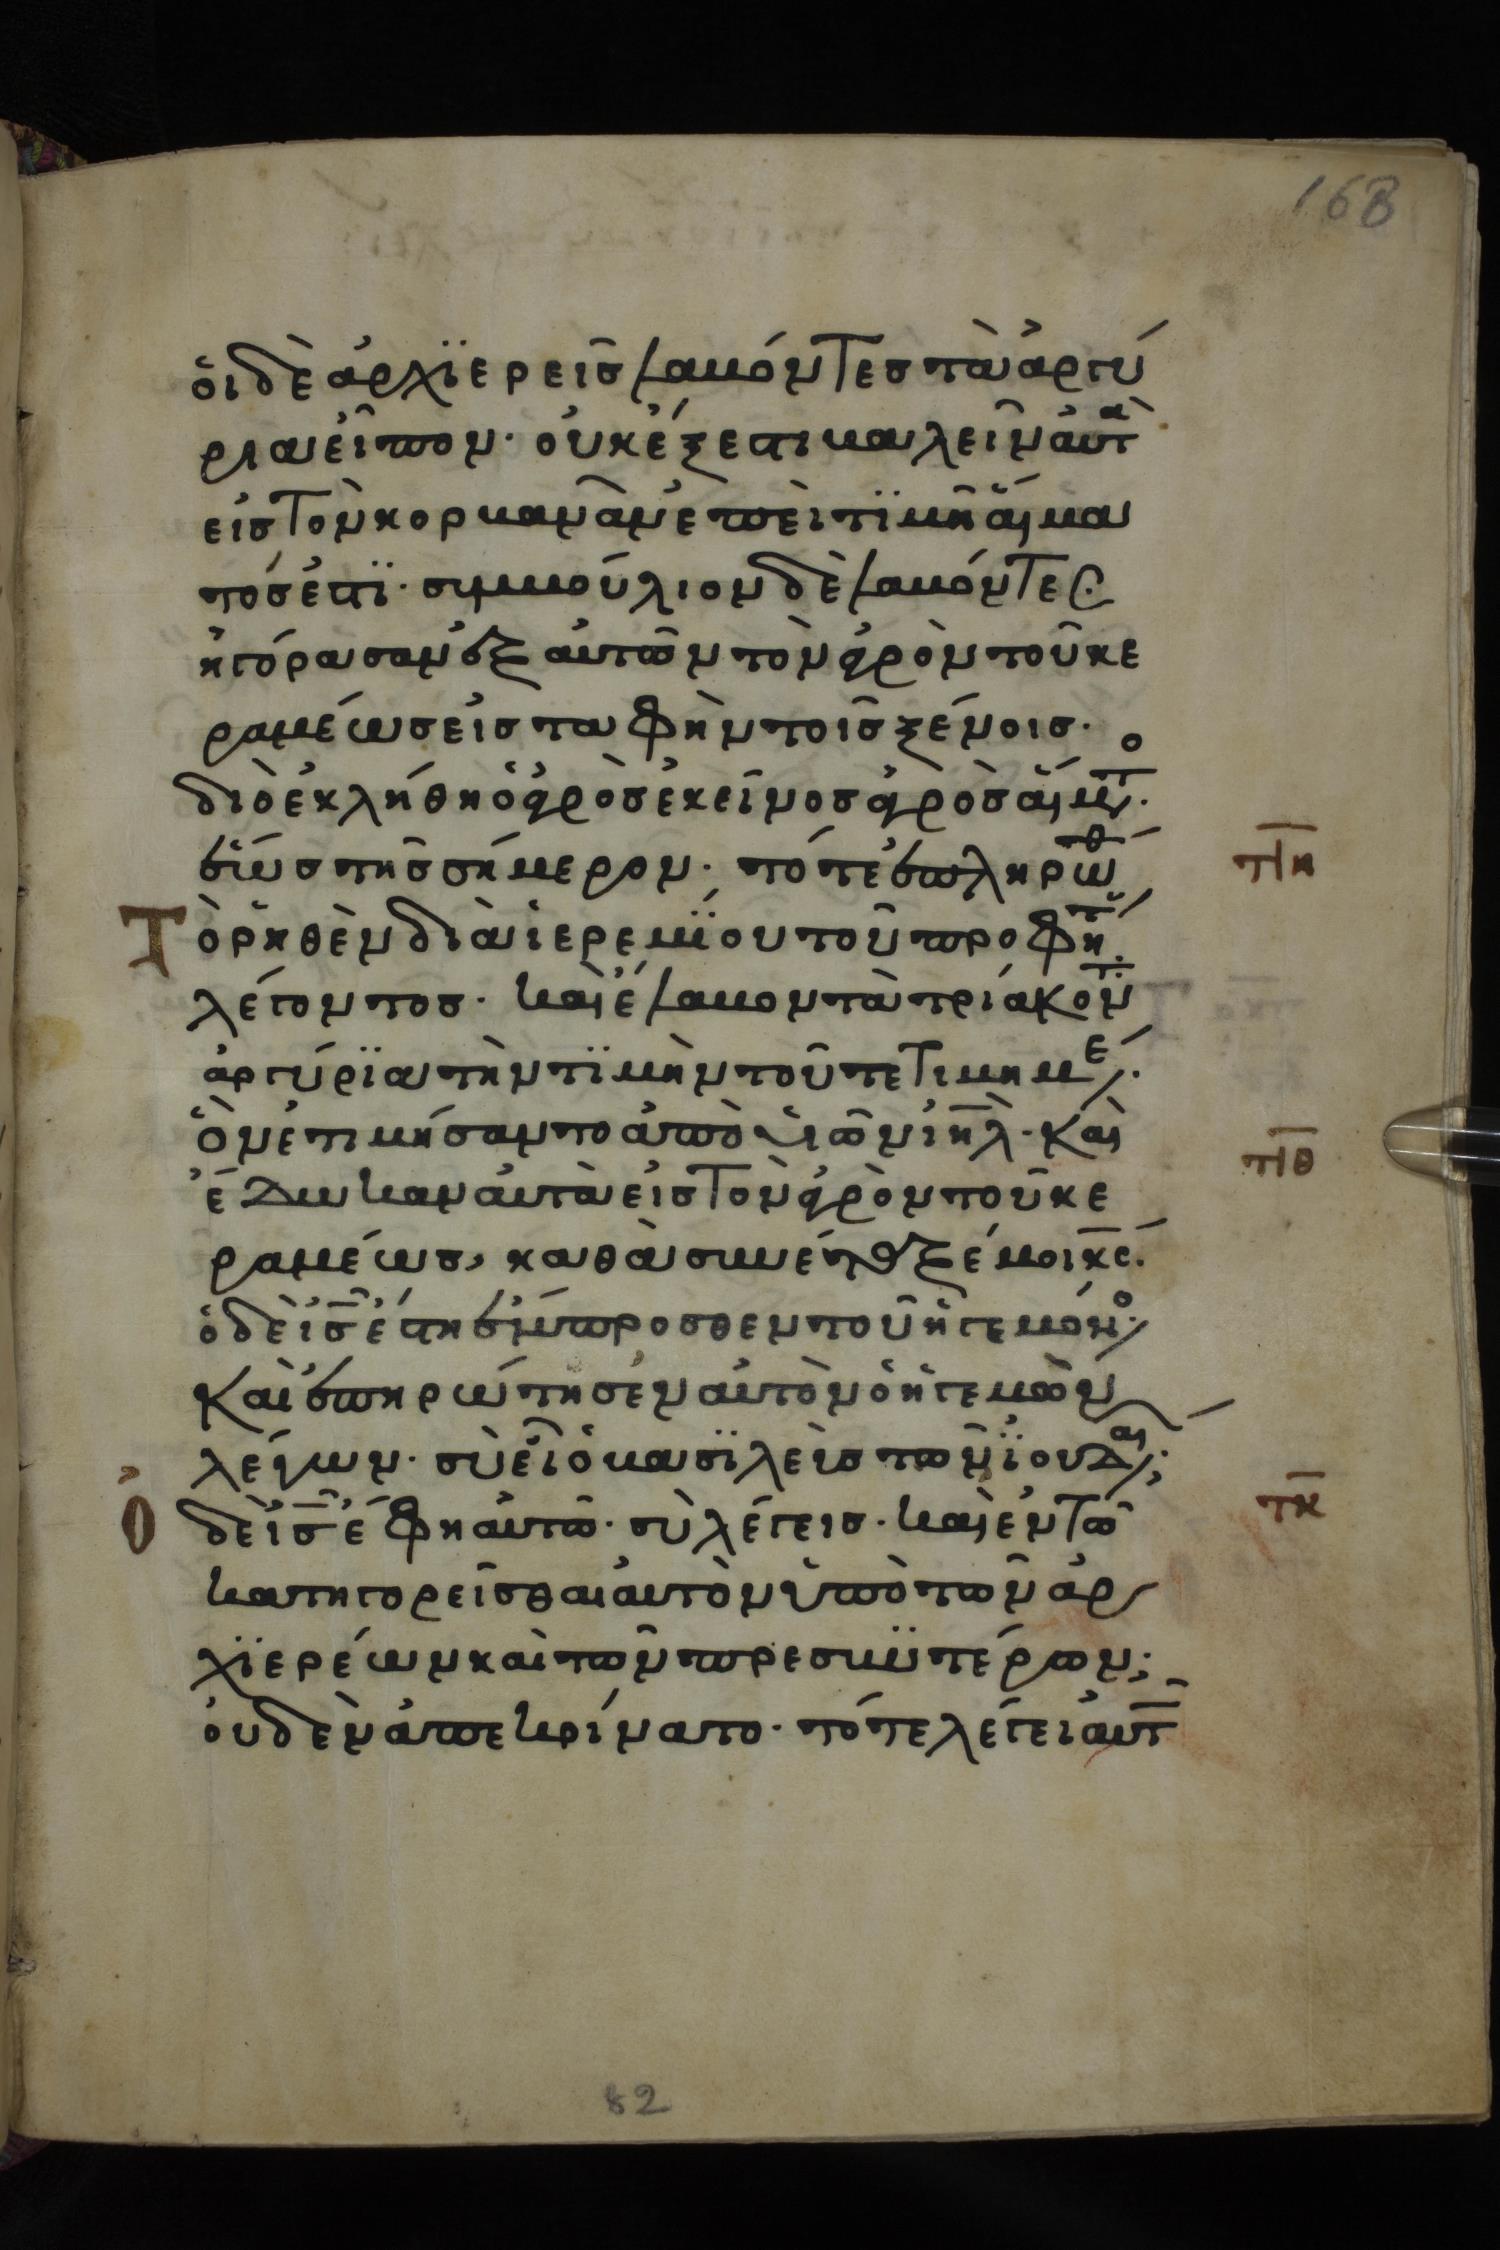 168
ὁι δὲ ἀρχϊερεῖς λαβόντες τὰ ἀργύ
ρια εἶπον· οὐκ ἔξεστι βαλεῖν αὐτὰ
εἰς τὸν κορβανᾶν ἐπεὶ τϊμὴ αἵμα
τός ἐστϊ· συμβούλιον δὲ λαβόντες
ἠγόρασαν ἐξ αὐτῶν τὸν ἀγρὸν τοῦ κε
ραμέως εἰς ταφὴν τοῖς ξένοις·
διὸ ἐκλήθη ὁ ἀγρὸς ἐκεῖνος ἀγρὸς αἵμτο·
ἕως τῆς σήμερον· τότε ἐπληρώθ
Τὸ ῥηθὲν διὰ ἱερεμΐου τοῦ προφήτ
λέγοντος· καὶ ἔλαβον τὰ τριάκοντ
ἀργύρϊα τὴν τϊμὴν τοῦ τετιμημέ
ὃν ἐτιμήσαντο ἀπὸ ὑιῶν ιηλ· καὶ
ἔδωκαν αὐτὰ εἰς τὸν ἀγρὸν τοῦ κε
ραμέως, καθὰ συνέταξέ μοι κς·
ὁ δὲ ις ἔστη ἔμπροσθεν τοῦ ἡγεμόνο
καὶ ἐπηρώτησεν αὐτὸν ὁ ἡγεμὼν
λέγων· σὺ εἶ ὁ βασϊλεὺς τῶν ϊουδαι;
Ὁ δὲ ις ἔφη αὐτῶ· σὺ λέγεις· καὶ ἐν τῶ
κατηγορεῖσθαι αὐτὸν ὑπὸ τῶν ἀρ
χϊερέων καὶ τῶν πρεσβϋτέρων·
οὐδὲν ἀπεκρίνατο· τότε λέγει αὐτ
τιη
τιθ
τκ
82